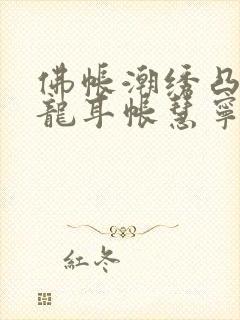 佛帳潮绣凸
龍耳帳慧寧
紅冬